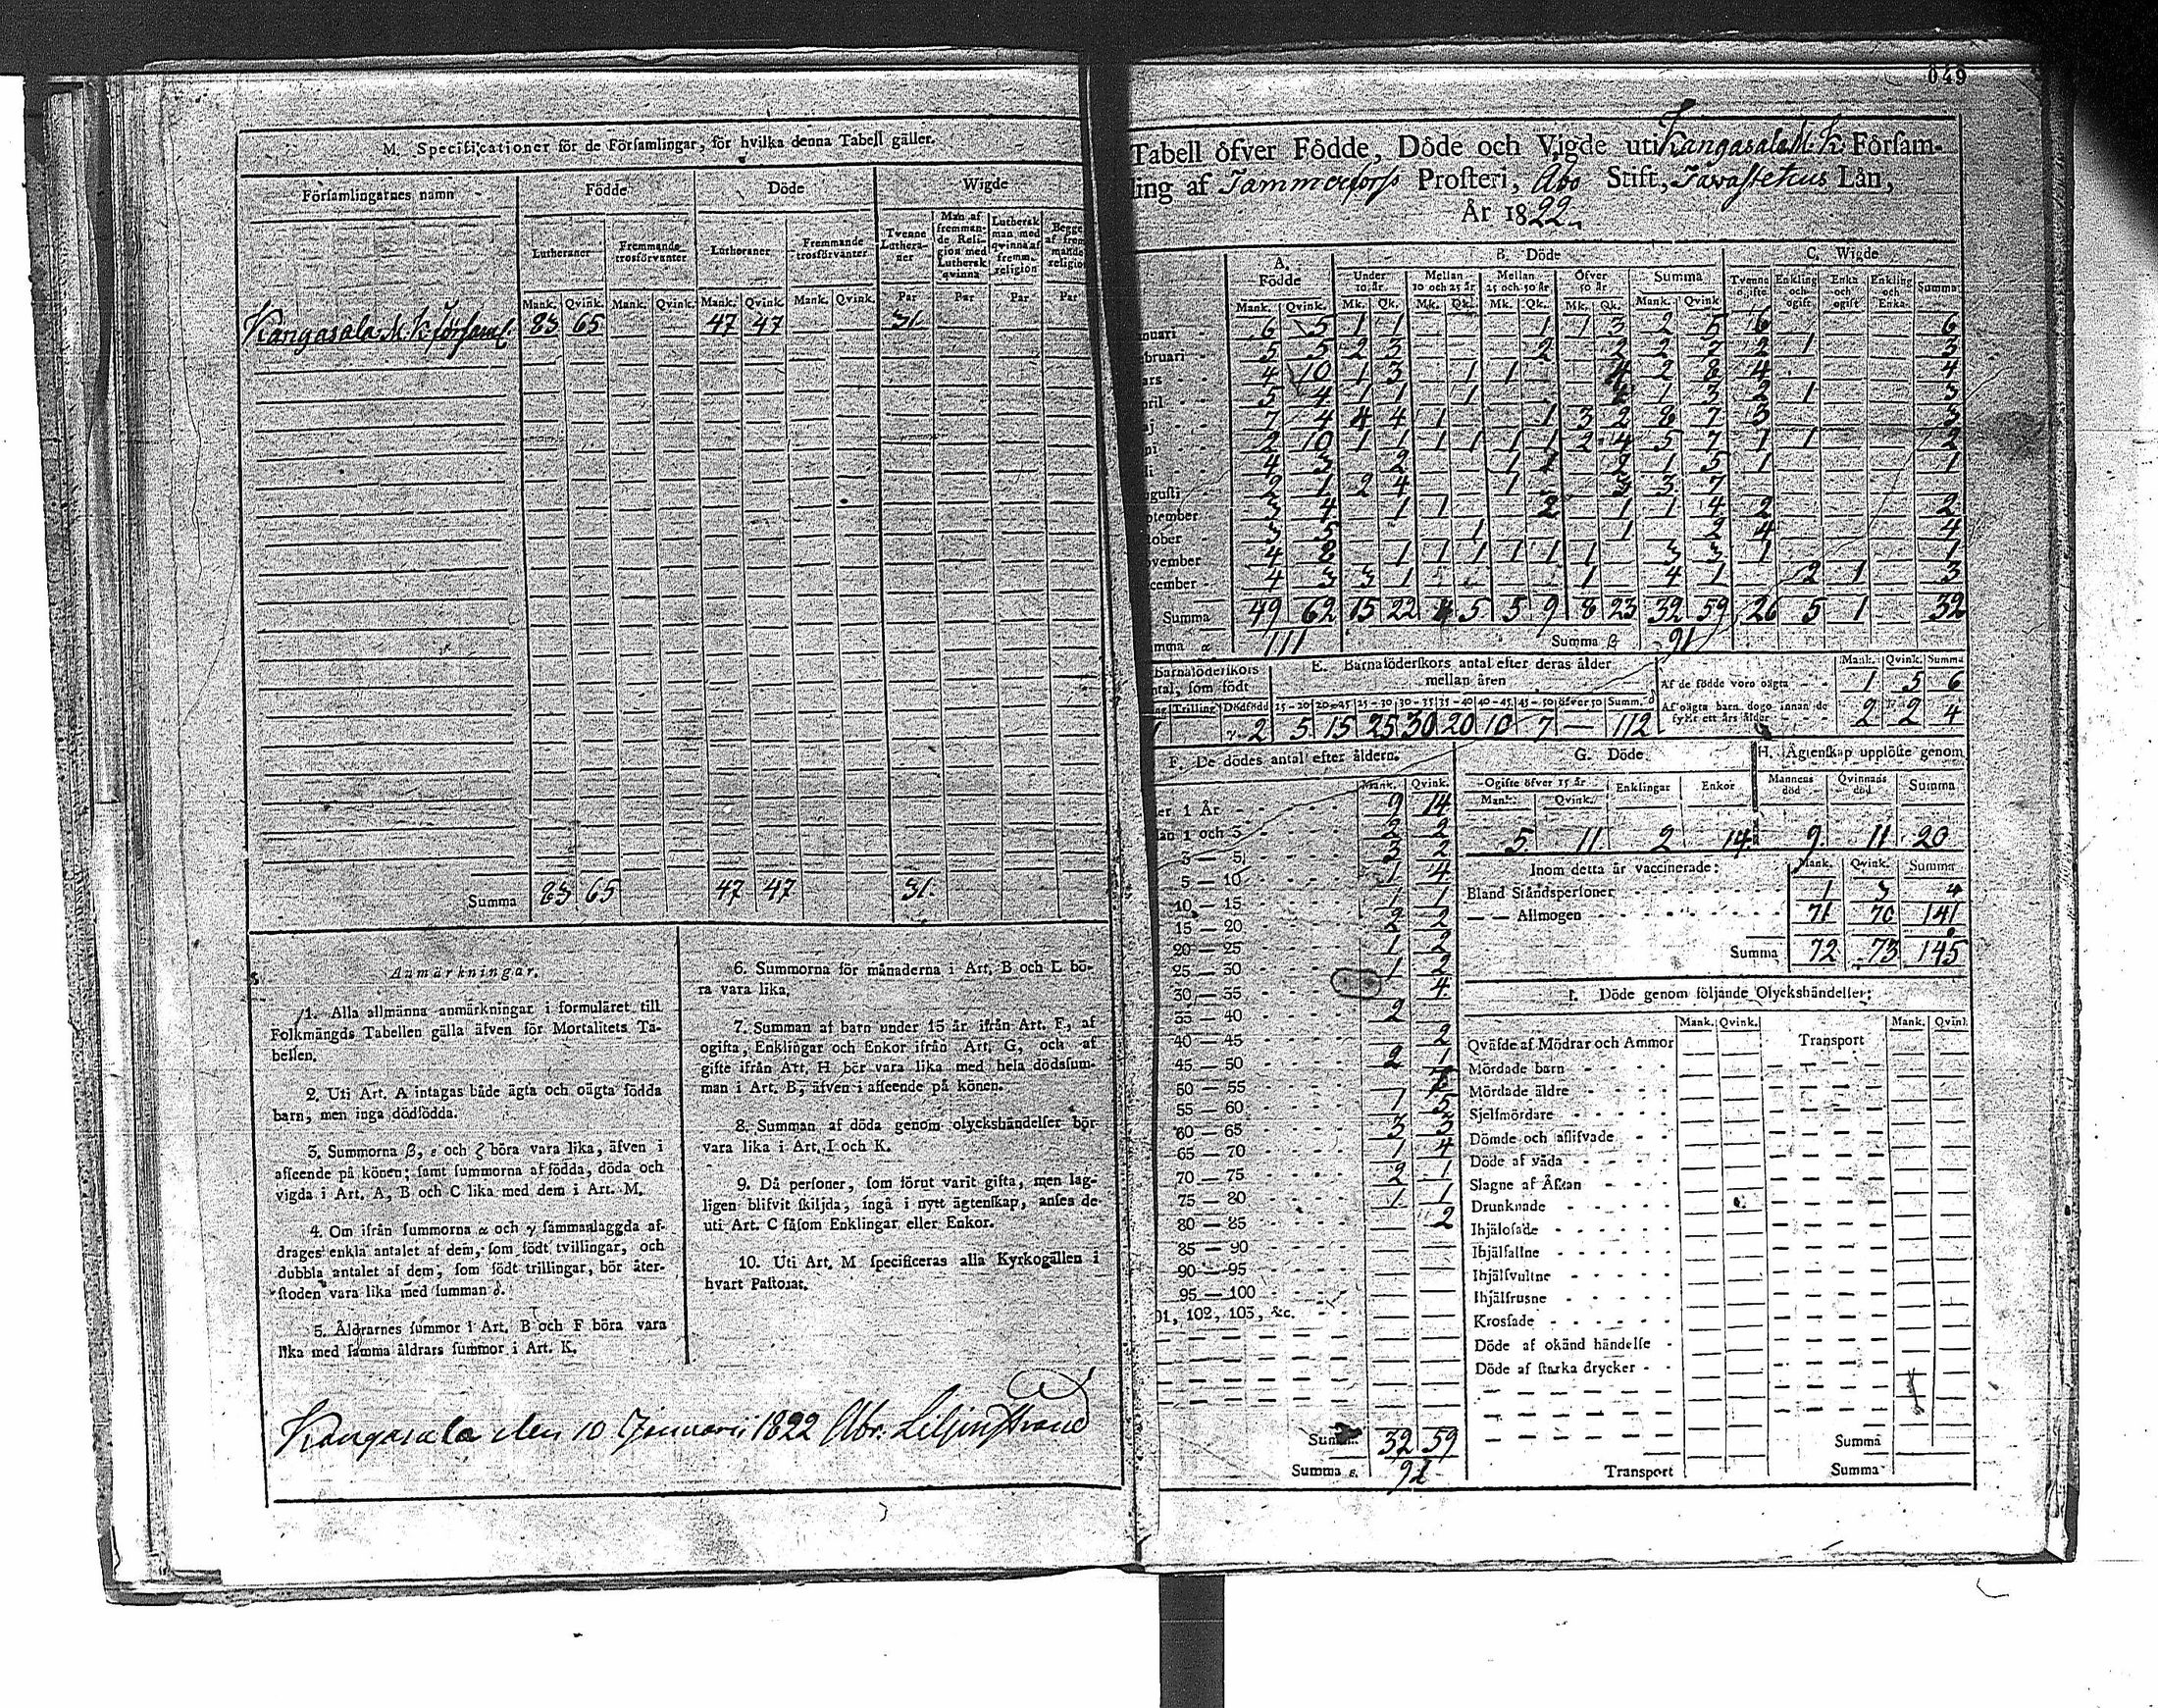 M. Specificationer för de Församlingar, för hvilka denna Tabell gäller.
Församlingarnes namn Födde Döde Wigde
Lutheraner Fremmande trosförvanter Lutheraner Fremmande trosförvanter Tvenne Lutheraner Man af fremmande Religion med Luthersk qvinna Luthersk man med qvinna af fremm. religion Begge af fremmande religion
Mank. Qvink. Mank. Qvink. Mank. Qvink. Mank. Qvink. Par Par Par Par
Kangasala M. K. församl. 83 65 47 47 31
Summa 83 65 47 47 31
Anmärkningar.
1. Alla allmänna anmärkningar i formuläret till
Folkmängds Tabellen gälla äfven för Mortalitets Ta-
bellen.
2. Uti Art. A intagas både ägta och oägta födda
barn, men inga dödfödda.
3. Summorna β, ε och ζ böra vara lika, äfven i
afseende på könen; samt summorna af födda, döda och
vigda i Art. A, B och C lika med dem i Art. M.
4. Om ifrån summorna α och γ sammanlaggda af-
drages enkla antalet af dem, som födt tvillingar, och
dubbla antalet af dem, som födt trillingar, bör åter-
stoden vara lika med summan δ.
5. Åldrarnes summor i Art. B och F böra vara
lika med samma åldrars summor i Art. K.
6. Summorna för månaderna i Art. B och L bö-
ra vara lika.
7. Summan af barn under 15 år ifrån Art. F., af
ogifta, Enklingar och Enkor ifrån Art. G, och af
gifte ifrån Art. H bör vara lika med hela dödssum-
man i Art. B, äfven i afseende på könen.
8. Summan af döda genom olyckshändelser bör
vara lika i Art. I och K.
9. Då personer, som förut varit gifta, men lag-
ligen blifvit skiljda, ingå i nytt ägtenskap, anses de
uti Art. C såsom Enklingar eller Enkor.
10. Uti Art. M specificeras alla Kyrkogällen i
hvart Pastorat.
Kangasala den 10 Januari 1822 Abr. Liljinstrand
049
Tabell öfver Födde, Döde och Vigde uti Kangasala M. K. Församling
ling af Tammerforss Prosteri, Åbo Stift, Tavastehus Län,
År 1822
A. Födde B. Döde C. Wigde
Under 10 år. Mellan 10 och 25 år Mellan 25 och 50 år Öfver 50 år Summa Tvenne ogifte Enkling och ogift Enka och ogift Enkling och Enka Summa
Mank. Qvink. Mk. Qk. Mk. Qk. Mk. Qk. Mk. Qk. Mank. Qvink
nuari 6 5 1 1 1 1 3 2 5 6 6
bruari 5 5 2 3 2 2 2 7 2 1 3
ars 4 10 1 3 1 1 4 2 8 4 4
pril 5 4 1 1 1 1 3 2 1 3
aj 7 4 4 4 1 1 3 2 8 7 3 3
ni 2 10 1 1 1 1 1 1 2 4 5 7 1 1 2
li 4 3 2 1 1 5 1 1
gusti 2 1 2 4 1 3 3 7
ptember 3 4 1 1 2 1 1 4 2 2
tober 3 5 1 1 2 4 4
ovember 4 8 1 1 1 1 1 1 3 3 1 1
cember 4 3 3 1 1 4 1 2 1 3
Summa 49 62 15 22 4 5 5 9 8 23 32 59 26 5 1 32
mma α 111 Summa β 91
Barnsföderskors
ntal, som födt
Trilling Dödfödd
1 2
E. Barnsföderskors antal efter deras ålder
mellan åren
15-20 20-25 25-30 30-35 35-40 40-45 45-50 öfver 50 Summ. δ
5 15 25 30 20 10 7 — 112
Mank. Qvink. Summa
Af de födde voro oägta 1 5 6
Af oägta barn dogo innan de fyllt ett års ålder 2 2 4
F. De dödes antal efter åldern.
Mank. Qvink.
er 1 År 9 14
an 1 och 3 2 2
3 — 5 3 2
5 — 10 1 4
10 — 15 1 1
15 — 20 2 2
20 — 25 1 2
25 — 30 1 2
30 — 35 4
35 — 40 2
40 — 45 2
45 — 50 2 1
50 — 55
55 — 60 1 5
60 — 65 3 3
65 — 70 1 4
70 — 75 2 1
75 — 80 1 1
80 — 85 2
85 — 90
90 — 95
95 — 100
01, 102, 103, &c.
Summa 32 59
Summa ε. 91
G. Döde
Ogifte öfver 15 år Enklingar Enkor
Mank. Qvink.
5 11 2 14
H. Ägtenskap upplöste genom
Mannens död Qvinnans död Summa
9 11 20
Inom detta år vaccinerade: Mank. Qvink. Summa
Bland Ståndspersoner 1 3 4
— — Allmogen 71 70 141
Summa 72 73 145
I. Döde genom följande Olyckshändelser:
Mank. Qvink. Mank. Qvink.
Qväfde af Mödrar och Ammor Transport
Mördade barn
Mördade äldre
Sjelfmördare
Dömde och aflifvade
Döde af våda
Slagne af Åskan
Drunknade
Ihjälosade
Ihjälfallne
Ihjälsvultne
Ihjälfrusne
Krossade
Döde af okänd händelse
Döde af starka drycker
Summa
Transport Summa